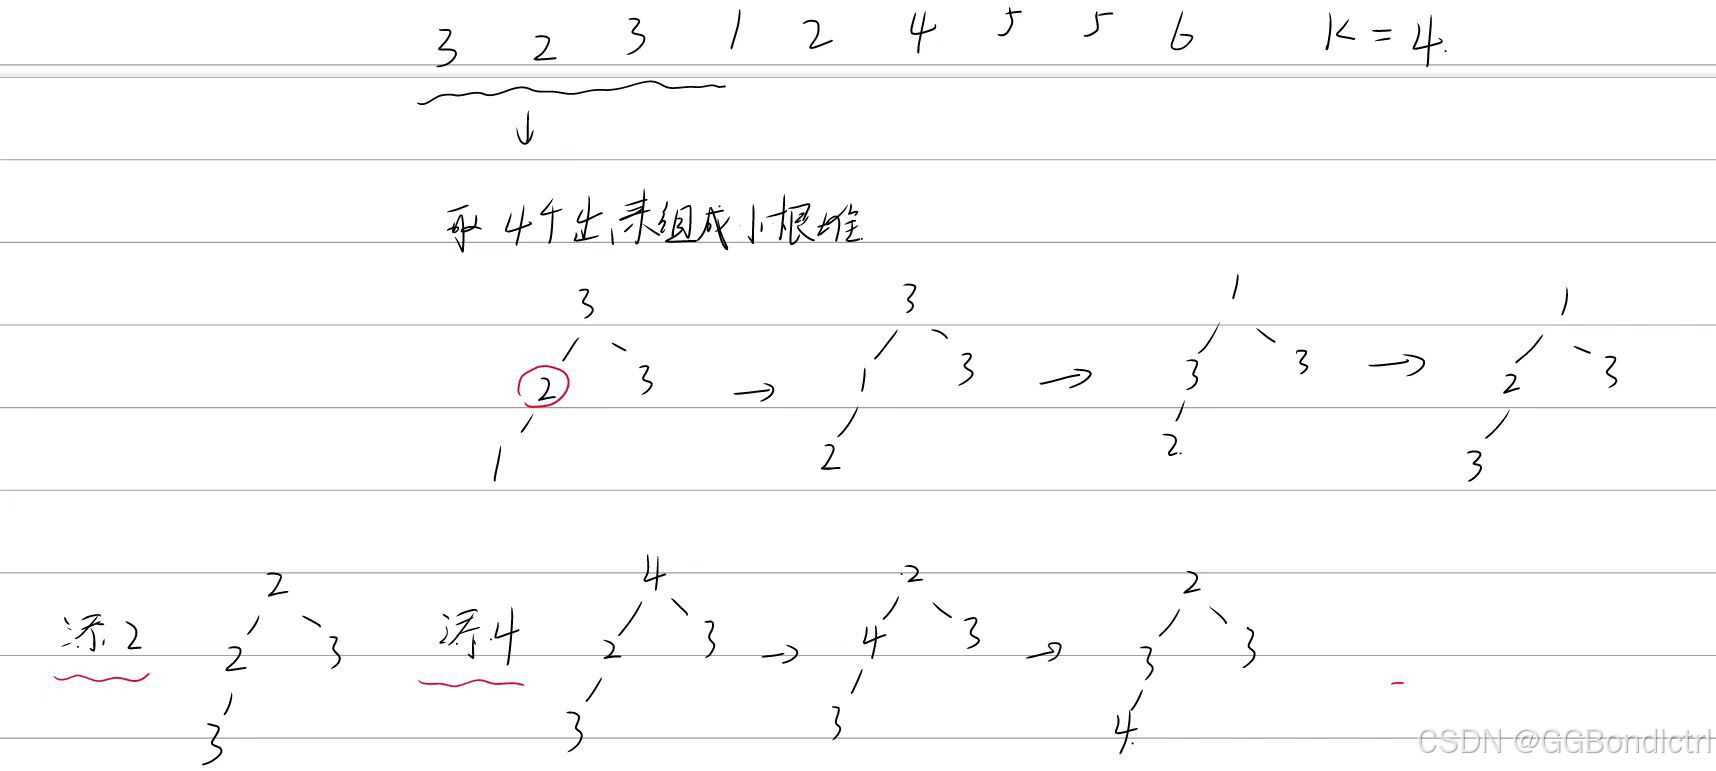 3 2 3 1 2 4 5 5 6 K = 4.
取 4个出来组成小根堆
3 3 1 1
2 3 1 3 3 3 2 3
1 2 2. 3
添2 2 添4 4 2 2
2 3 2 3 4 3 3 3
3 3 3 4.
CSDN @GGBondlctrl